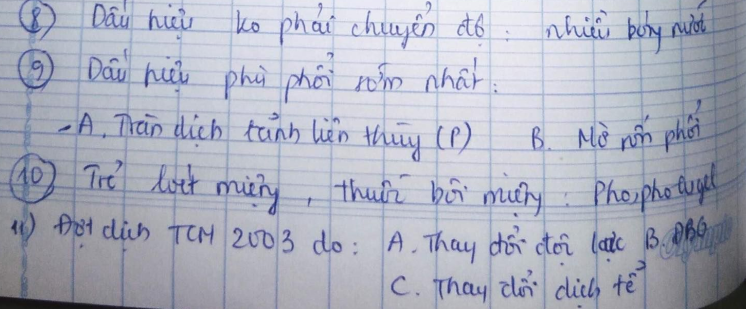 8) Dấu hiệu ko phải chuyển độ : nhiều bóng nước
9) Dấu hiệu phù phổi sớm nhất :
- A. Tràn dịch rãnh liên thùy (P) B. Mờ rốn phổi
10) Trẻ loét miệng, thuốc bôi miệng : Phosphalugel
11) Đợt dịch TCM 2003 do : A. Thay đổi độc lực B.
C. Thay đổi dịch tễ